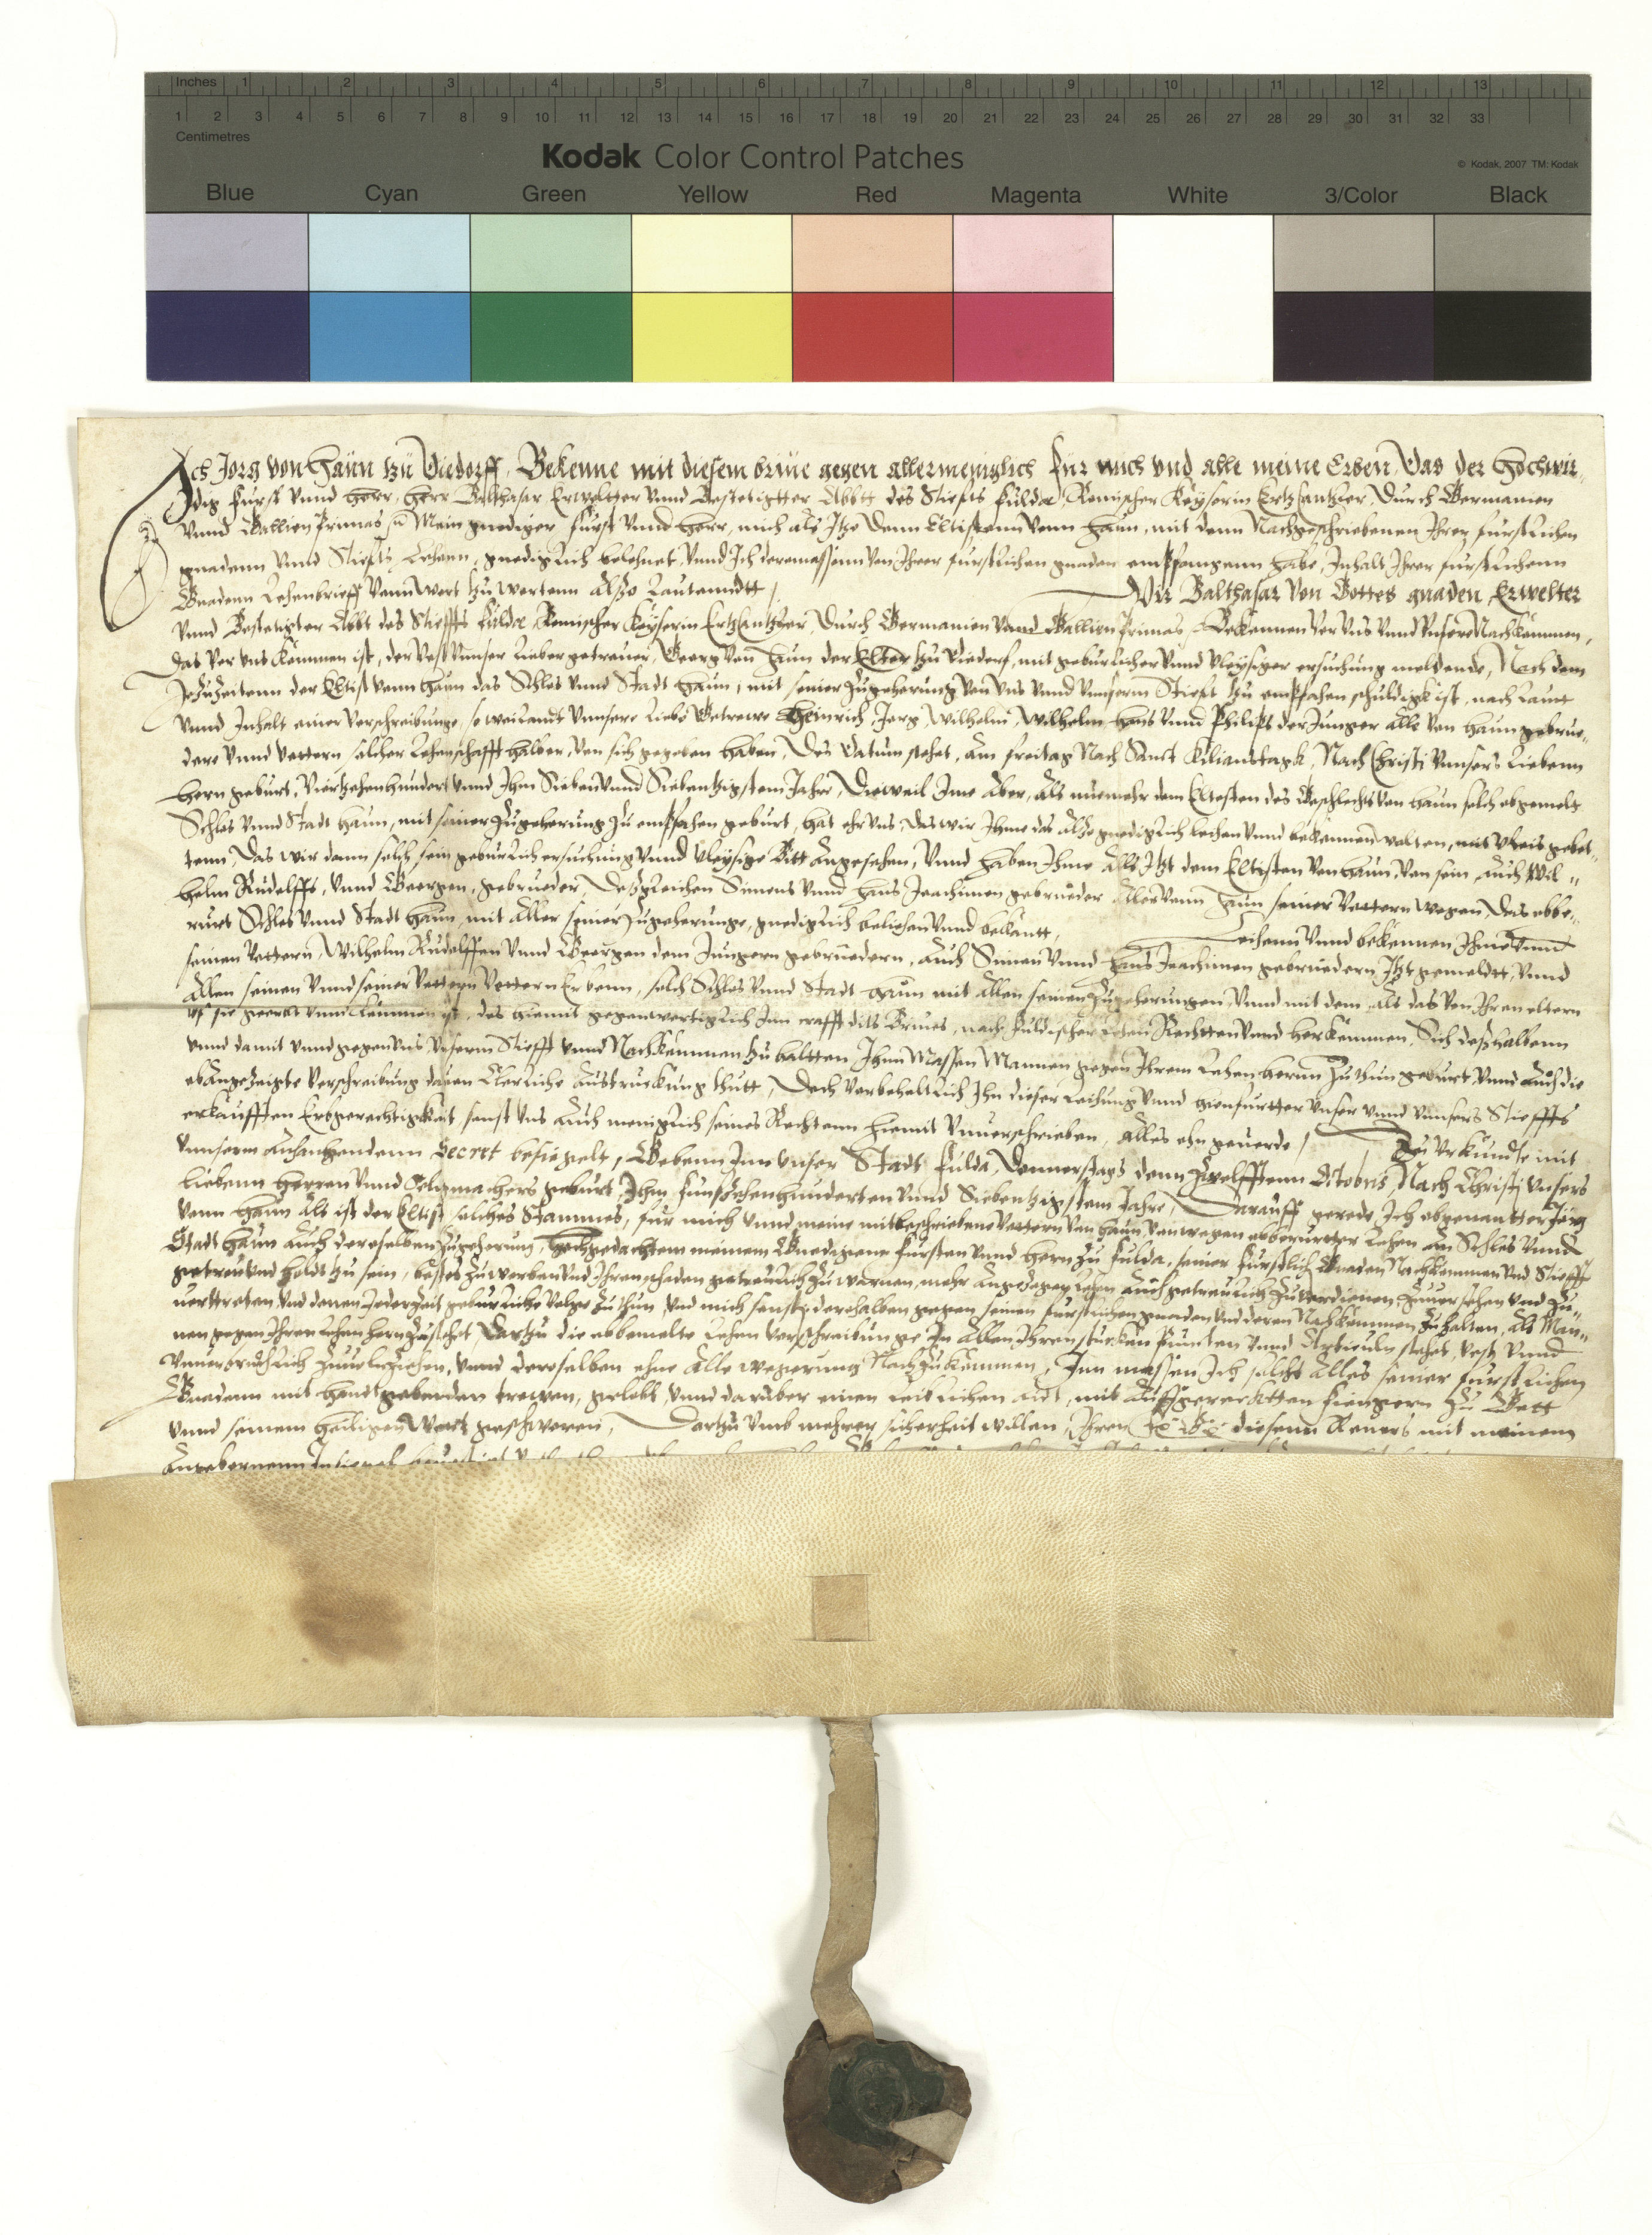 Inches 1 2 3 4 5 6 7 8 9 10 11 12 13
1 2 3 4 5 6 7 8 9 10 11 12 13 14 15 16 17 18 19 20 21 22 23 24 25 26 27 28 29 30 31 32 33
Centimetres
Kodak Color Control Patches
© Kodak, 2007 TM: Kodak
Blue Cyan Green Yellow Red Magenta White 3/Color Black
Ich Jorg von Haün zü Diedorff, Bekenne mit diesem briue gegen allermeniglich für mich vnd alle meine Erben, Das der Hochwir-
dig Fürst vnnd Herr, Herr Balthasar Erweltter vnnd Bestetigtter Abbtt des Stiefts Fülda, Romischer Keyserin Ertzkantzler, Durch Germanien
vnnd Gallien Primas Mein gnediger Fürst vnnd Herr, mich als Itzo Denn Eltistenn vonn Haun, mit denn Nachgeschriebenen Ihrer Fürstlichen
gnadenn vnnd Stiefts Lehenn, gnediglich belehnet, vnnd Ich dermassenn von Ihrer fürstlichen gnaden empfangenn habe, Inhalt Ihrer fürstlichenn
Gnadenn Lehenbrieff Vonn Wort zu Wortenn Also Lautenndtt, Wir Balthasar Von Gottes gnaden, Erwelter
vnnd Bestetigter Abbt des Stieffts Fülda, Romischer Keyserin Ertzkantzler, Durch Germanien vnnd Gallien Primas, Bekennen Vor Vns vnnd vnsere Nachkommen,
Das Vor vns Kommen ist, der Vest Vnnser Lieber getreuer, Georg von Haun der Elter zu Diedorf, mit geburlicher vnnd vleysiger ersuchung meldende, Nach dem
Jezuzeitenn der Eltist vonn Haun das Schlos vnnd Stadt Haun, mit seiner Zugehorung von vns vnnd vnserm Stieft zu empfahen schuldigk ist, nach Laut
vnnd Inhalt einer Verschreibunge, so weilandt vnnsere Liebe Getrewe Heinrich, Jorg, Wilhelm, Wilhelm, Hans vnnd Philips der Junger alle von Haun gebrue-
dere vnnd Vettern, solcher Lehenschafft halben, von sich gegeben haben, Des Datum stehet, am Freitag Nach Sanct Kilianstagk, Nach Christi Vnnsers Liebenn
Hern geburt, Viertzehenhundert vnnd Ihm Sieben vnnd Siebentzigstem Jahre, Dieweil Ime Aber, Als nunmehr dem Eltesten des Geschlechts von Haun solch obgemelt
Schlos vnnd Stadt Haun, mit seiner Zugehorung zu empfahen geburt, hat ehr vns, das wir Ihme das Also gnediglich leihen vnnd bekennen wolten, mit vleis gebet-
tenn, Das wir dann solch sein geburlich ersuchung vnnd vleysige Bitt Angesehen, Vnnd haben Ihme Als Itzt dem Eltisten von Haun, von sein Auch Wil-
helm Rudolffs, vnnd Georgen, gebrueder, Desgleichen Simons vnnd Hans Joachimen gebrueder Aller vonn Haun seiner Vettern wegen, Das obbe-
rurt Schlos vnnd Stadt Haun, mit Aller seiner Zugehorunge, gnediglich beliehen vnnd bekantt, Leihenn vnnd bekennen Ihme vnnd
seinen Vettern, Wilhelm Rudolffen vnnd Georgen dem Jungern gebruedern, Auch Simon vnnd Hans Joachimen gebruedern Itzt gemeldtt, Vnnd
Allen seinen vnnd seiner Vettern Vettern Erbenn, solch Schlos vnnd Stadt Haun mit Allen seinen Zugehorungen, Vnnd mit dem als das von Ihren eltern
vf sie geerbt vnnd Kommen ist, das hiemit gegenwertiglich Inn crafft dits Briues, nach Fuldischer Lehen Rechtten vnnd herkommen, Sich deßhalbenn
vnnd damit vnnd gegen vns Vnserm Stiefft vnnd Nachkommen zu haltten, Ihnn Massen Mannen gegen Ihrem Lehenhernn zu thun geburt, Vnnd auch die
obangezeigte Verschreibung dauon Clerliche Austruckung thutt, Doch vorbeheltlich Ihn dieser Leihung vnnd hienfurtter Vnser vnnd Vnnsers Stieffts
erkaufften Erbgerechtigkeit, sonst vns Auch meniglich seines Rechtenn hiemit Vnuerschrieben, Alles ohn geuerde, Zu Vrkundt mit
vnnserm Anhangendenn Secret besiegelt, Gebenn Inn Vnser Stadt Fulda, Donnerstags denn Zwelfftenn Octobris, Nach Christj Vnsers
Liebenn Herren vnnd Seligmachers geburt, Ihm Funfzehenhunderten vnnd Siebentzigstem Jahre, Darauff gerede Ich obgenantter Jorg
vonn Haun Als itzt der Eltist solches Stammes, für mich vnnd meine mitbeschriebene Vettern von Haun, von wegen obberurtter Lehen an Schlos vnnd
Stadt Haun Auch derselben Zugehorung, Hochgedachtem meinem Gnedigenn Fursten vnnd Hern zu Fulda, seiner Fürstlich Gnaden Nachkommen vnd Stiefft
getreu vnd holdt zu sein, bestes zu werben vnd Ihren schaden getreulich zu warnen, mehr Angezogen Lehen Auch getreulich zu verdienen, zuuorsehen vnd zu-
uertreten, vnd denen Jederzeit geburliche volge zu thun, vnd mich sonst derohalben gegen seinen furstlichen gnaden vnd deren Nachkommen zu halten, Als Man-
nen gegen Ihren Lehenhern zustehet, Dartzu die obbemelte Lehen verschreibunge In Allen Ihren stucken Puncten vnnd Articuln stehet, vest vnnd
Vnuerbruchlich zuuolnziehen, vnnd derselben ohne Alle wegerung Nachzukommen, Inn massen Ich solchs Alles seiner fürstlichen
Gnadenn mit handtgebenden trewen, gelobt, vnnd daruber einen leiblichen eidt, mit Auffgereckten fiengern zu Gott
vnnd seinem heiligen Wort geschworen, Dartzu vmb mehrer sicherheit willen, Ihren diesenn Reuers mit meinem
Angebornenn Insiegel